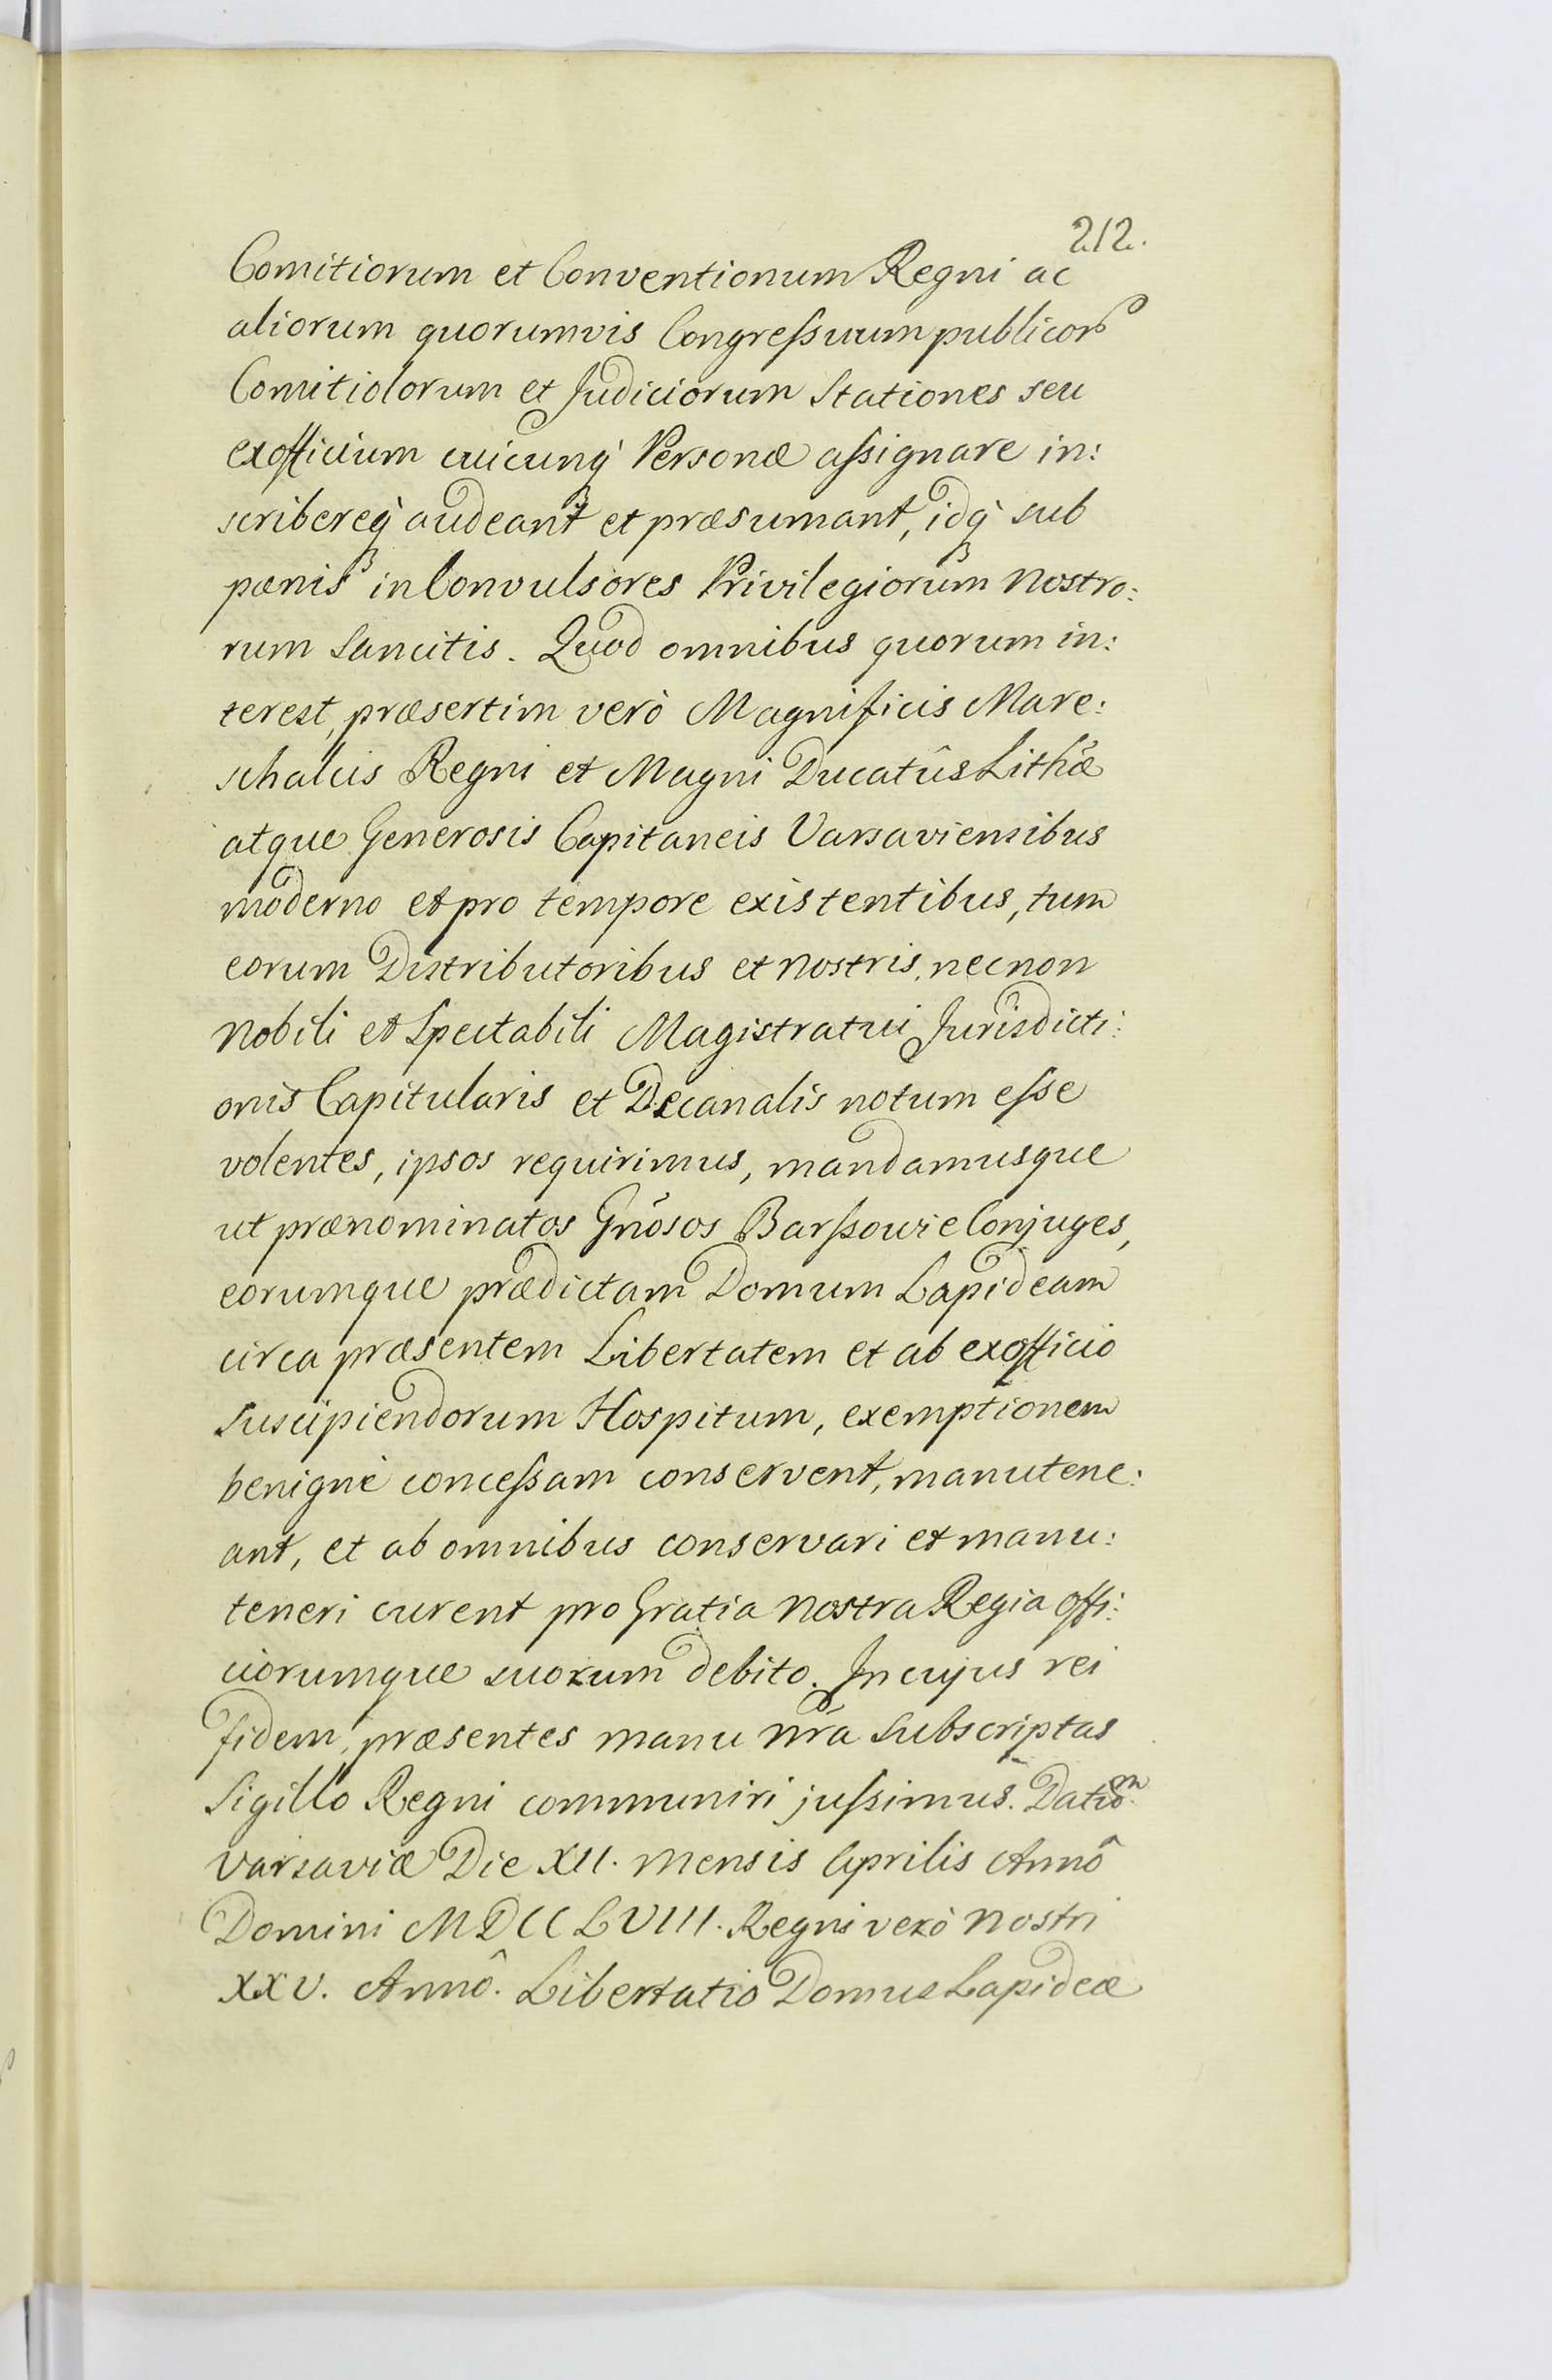 212.
Comitiorum et Conventionum Regni ac
aliorum quorumvis Congreſsuum publicor
Comitiolorum et Judiciorum Stationes seu
exofficium cuicunq̀ Personæ aſsignare in:
scribereq̀ audeant et præsumant, idq̀ sub
pœnis in Convulsores Privilegiorum Nostro:
rum Sancitis. Quod omnibus quorum in:
terest, præsertim verò Magnificis Mare:
schalcis Regni et Magni Ducatûs Lithæ
atque Generosis Capitaneis Varsaviensibus
moderno et pro tempore existentibus, tum
eorum Distributoribus et Nostris, necnon
Nobili et Spectabili Magistratui Jurisdicti:
onis Capitularis et Decanalis notum eſse
volentes, ipsos requirimus, mandamusque
ut prænominatos Gnõsos Barſsowie Conjuges,
eorumque prædictam Domum Lapideam
circa præsentem Libertatem et ab exofficio
Suscipiendorum Hospitum, exemptionem
benignè conceſsam conservent, manutene:
ant, et ab omnibus conservari et manu:
teneri curent pro Gratia Nostra Regia offi:
ciorumque suorum debito. In cujus rei
fidem, præsentes manu Nrã Subscriptas
Sigillo Regni communiri juſsimus. Datũm
Varsaviæ Die XII. Mensis Aprilis Annô
Domini MDCCLVIII. Regni verò Nostri
XXV. Annô. Libertatio Domus Lapideæ